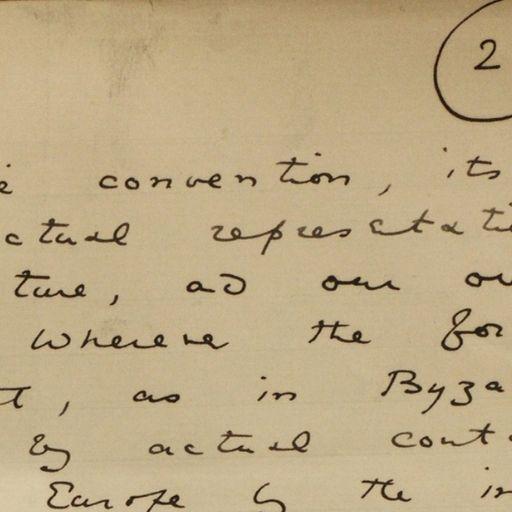 2
convention, its
ctual representati
ture, ad our ow
Wherever the for
t, as in Byza
by actual conta
Europe by the in